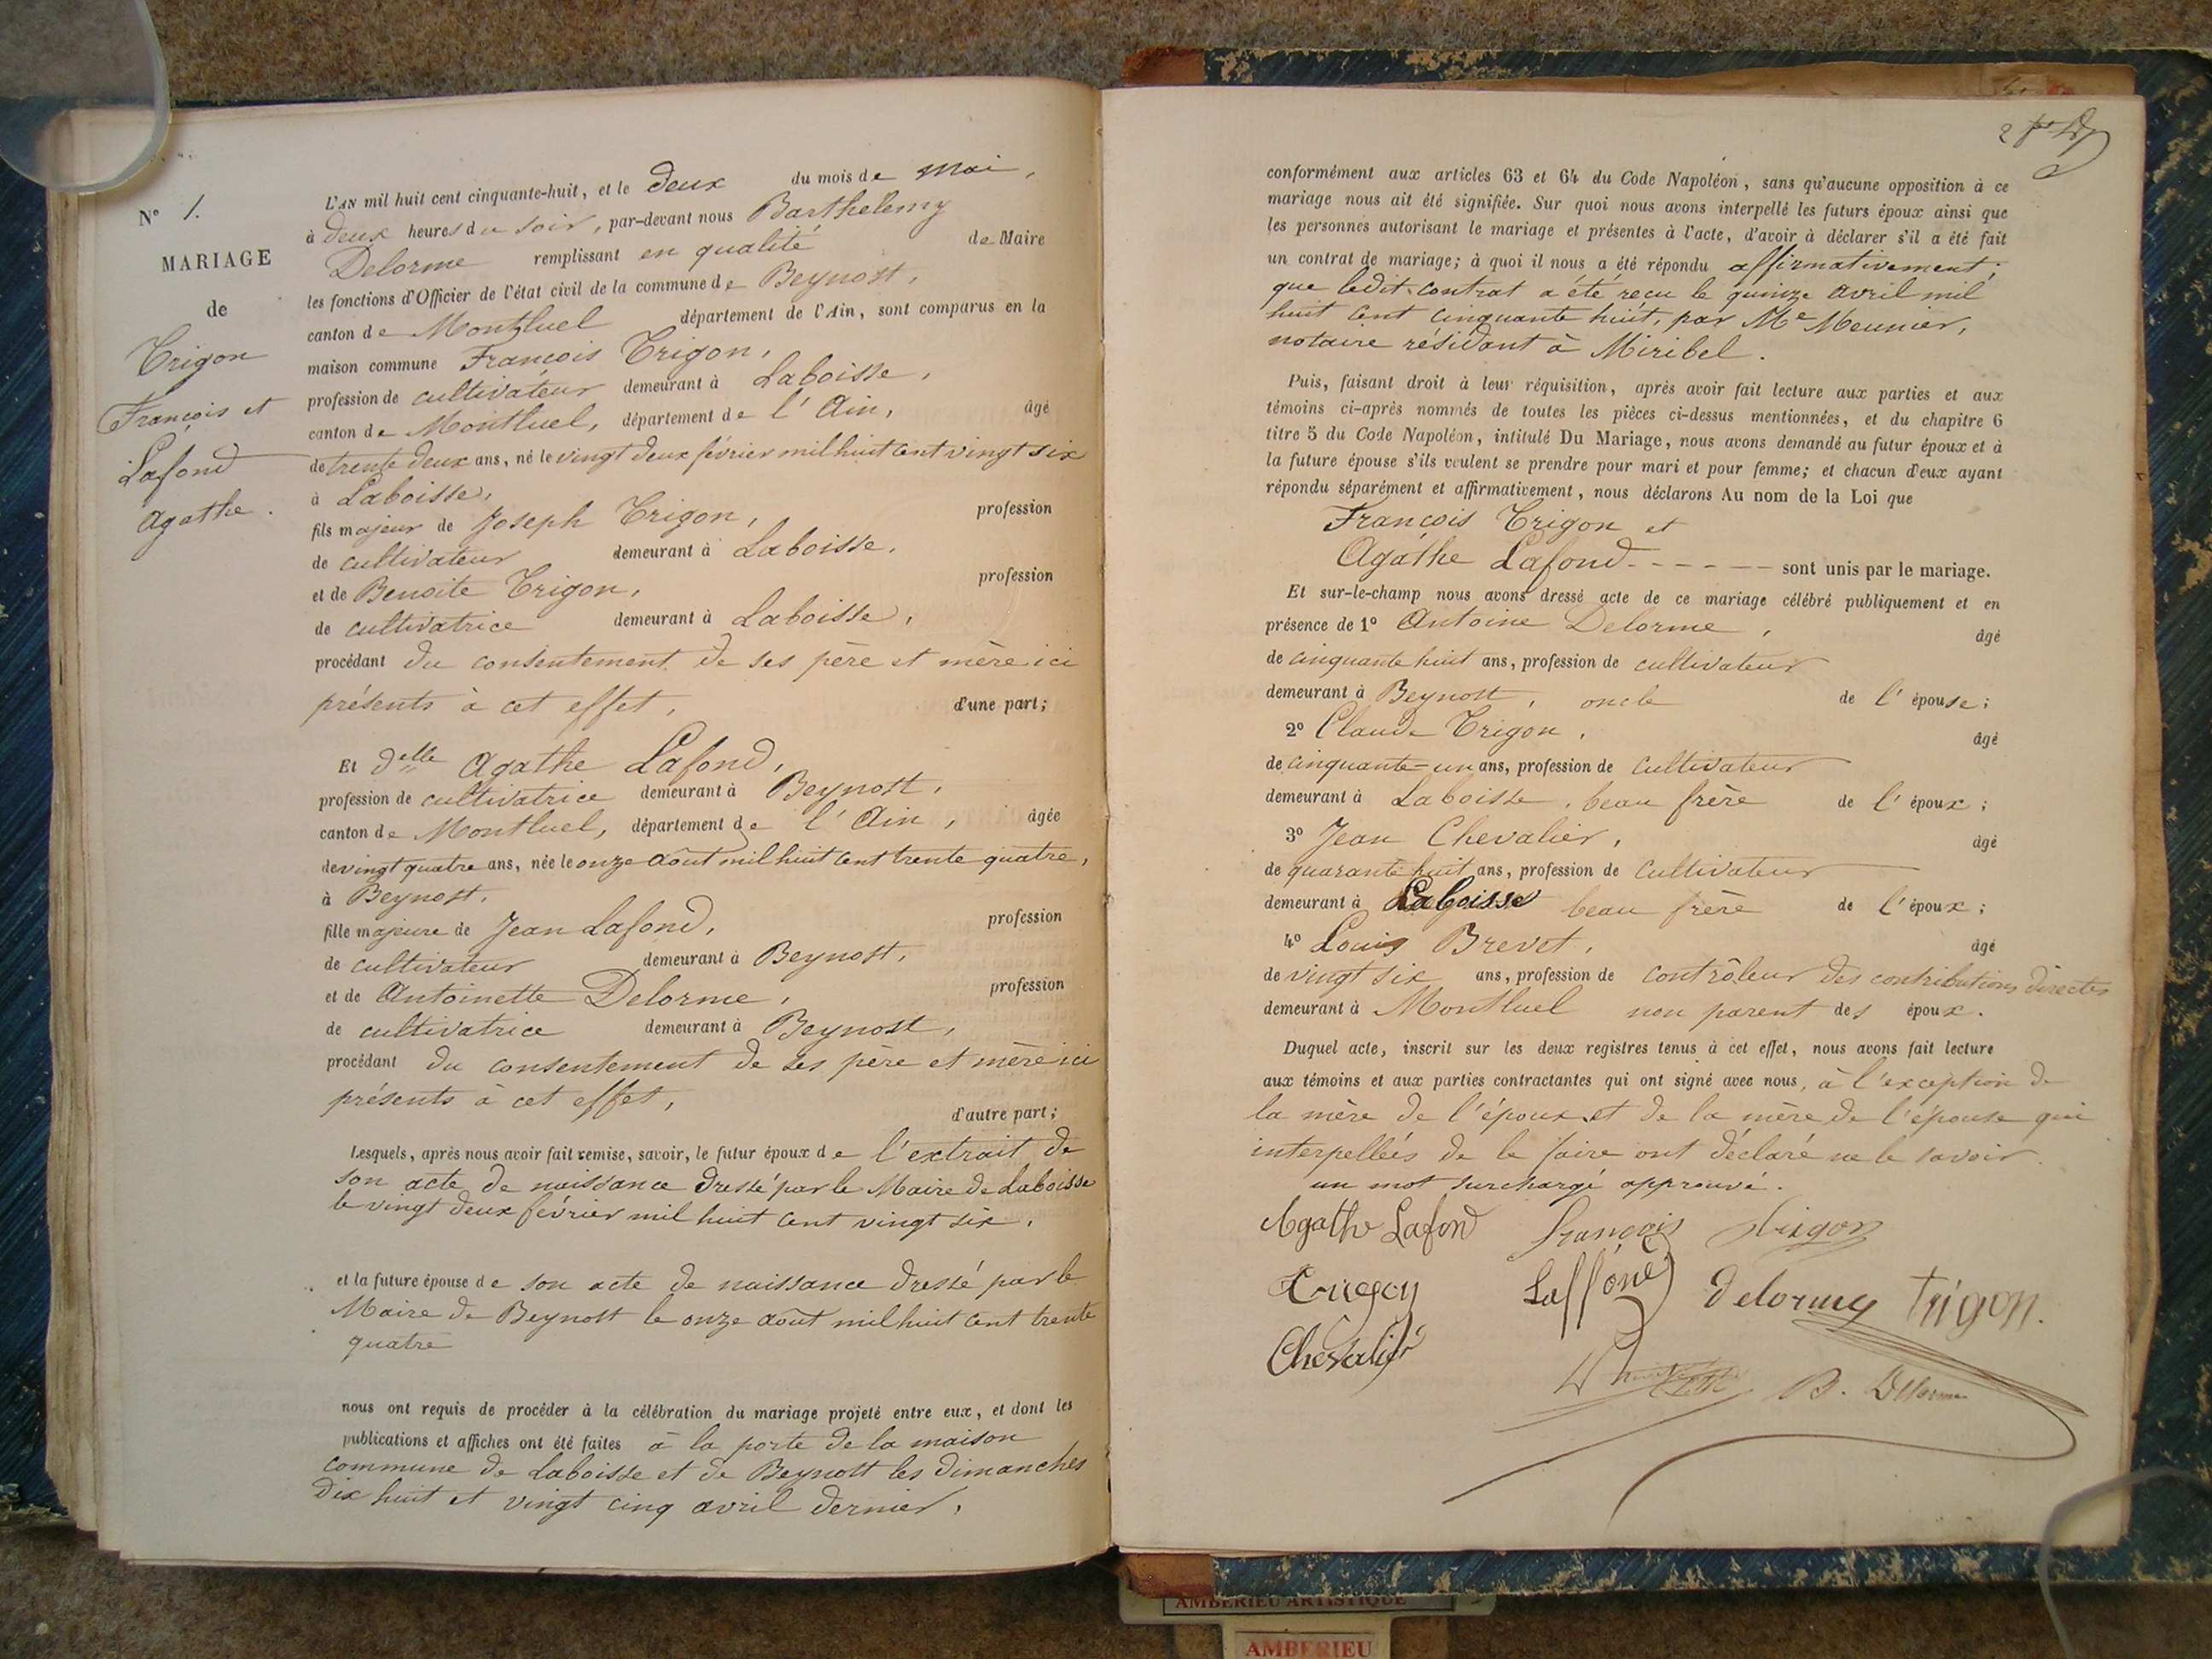 N° 1.
MARIAGE
de
Trigon
François et
Lafond
Agathe.
L'AN mil huit cent cinquante-huit, et le deux du mois de Mai,
à deux heures du soir, par-devant nous Barthelemy
Delorme remplissant en qualité de Maire
les fonctions d'Officier de l'état civil de la commune de Beynost,
canton de Montluel département de l'Ain, sont comparus en la
maison commune François Trigon,
profession de cultivateur demeurant à Laboisse,
canton de Montluel, département de l'Ain, âgé
de trente deux ans, né le vingt deux février mil huit cent vingt six
à Laboisse,
fils majeur de Joseph Trigon, profession
de cultivateur demeurant à Laboisse,
et de Benoite Trigon, profession
de cultivatrice demeurant à Laboisse,
procédant du consentement de ses père et mère ici
présents à cet effet, d'une part;
Et delle Agathe Lafond,
profession de cultivatrice demeurant à Beynost,
canton de Montluel, département de l'Ain, âgée
de vingt quatre ans, née le onze août mil huit cent trente quatre,
à Beynost.
fille majeure de Jean Lafond, profession
de cultivateur demeurant à Beynost,
et de Antoinette Delorme, profession
de cultivatrice demeurant à Beynost,
procédant du consentement de ses père et mère ici
présents à cet effet, d'autre part;
Lesquels, après nous avoir fait remise, savoir, le futur époux de l'extrait de
son acte de naissance dressé par le Maire de Laboisse
le vingt deux février mil huit cent vingt six.
et la future épouse de son acte de naissance dressé par le
Maire de Beynost le onze août mil huit cent trente
quatre
nous ont requis de procéder à la célébration du mariage projeté entre eux, et dont les
publications et affiches ont été faites à la porte de la maison
commune de Laboisse et de Beynost les dimanches
dix huit et vingt cinq avril dernier,
2
conformément aux articles 63 et 64 du Code Napoléon, sans qu'aucune opposition à ce
mariage nous ait été signifiée. Sur quoi nous avons interpellé les futurs époux ainsi que
les personnes autorisant le mariage et présentes à l'acte, d'avoir à déclarer s'il a été fait
un contrat de mariage; à quoi il nous a été répondu affirmativement;
que ledit contrat a été reçu le quinze avril mil
huit cent cinquante huit, par Me Meunier,
notaire résidant à Miribel.
Puis, faisant droit à leur réquisition, après avoir fait lecture aux parties et aux
témoins ci-après nommés de toutes les pièces ci-dessus mentionnées, et du chapitre 6
titre 5 du Code Napoléon, intitulé Du Mariage, nous avons demandé au futur époux et à
la future épouse s'ils veulent se prendre pour mari et pour femme; et chacun d'eux ayant
répondu séparément et affirmativement, nous déclarons Au nom de la Loi que
François Trigon et
Agathe Lafond - - - - - - sont unis par le mariage.
Et sur-le-champ nous avons dressé acte de ce mariage célébré publiquement et en
présence de 1° Antoine Delorme, âgé
de cinquante huit ans, profession de cultivateur
demeurant à Beynost, oncle de l'épouse;
2° Claude Trigon, âgé
de cinquante-un ans, profession de cultivateur
demeurant à Laboisse, beau frère de l'époux;
3° Jean Chevalier, âgé
de quarante huit ans, profession de cultivateur
demeurant à Laboisse beau frère de l'époux;
4° Louis Brevet, âgé
de vingt six ans, profession de contrôleur des contributions directes
demeurant à Montluel non parent des époux.
Duquel acte, inscrit sur les deux registres tenus à cet effet, nous avons fait lecture
aux témoins et aux parties contractantes qui ont signé avec nous, à l'exception de
la mère de l'époux et de la mère de l'épouse qui
interpellées de le faire ont déclaré ne le savoir.
un mot surchargé approuvé.
Agathe Lafond François Trigon
Trigon Laffond delorme trigon.
Chevalié
B. Delorme
AMBERIEU ARTISTIQUE
AMBERIEU